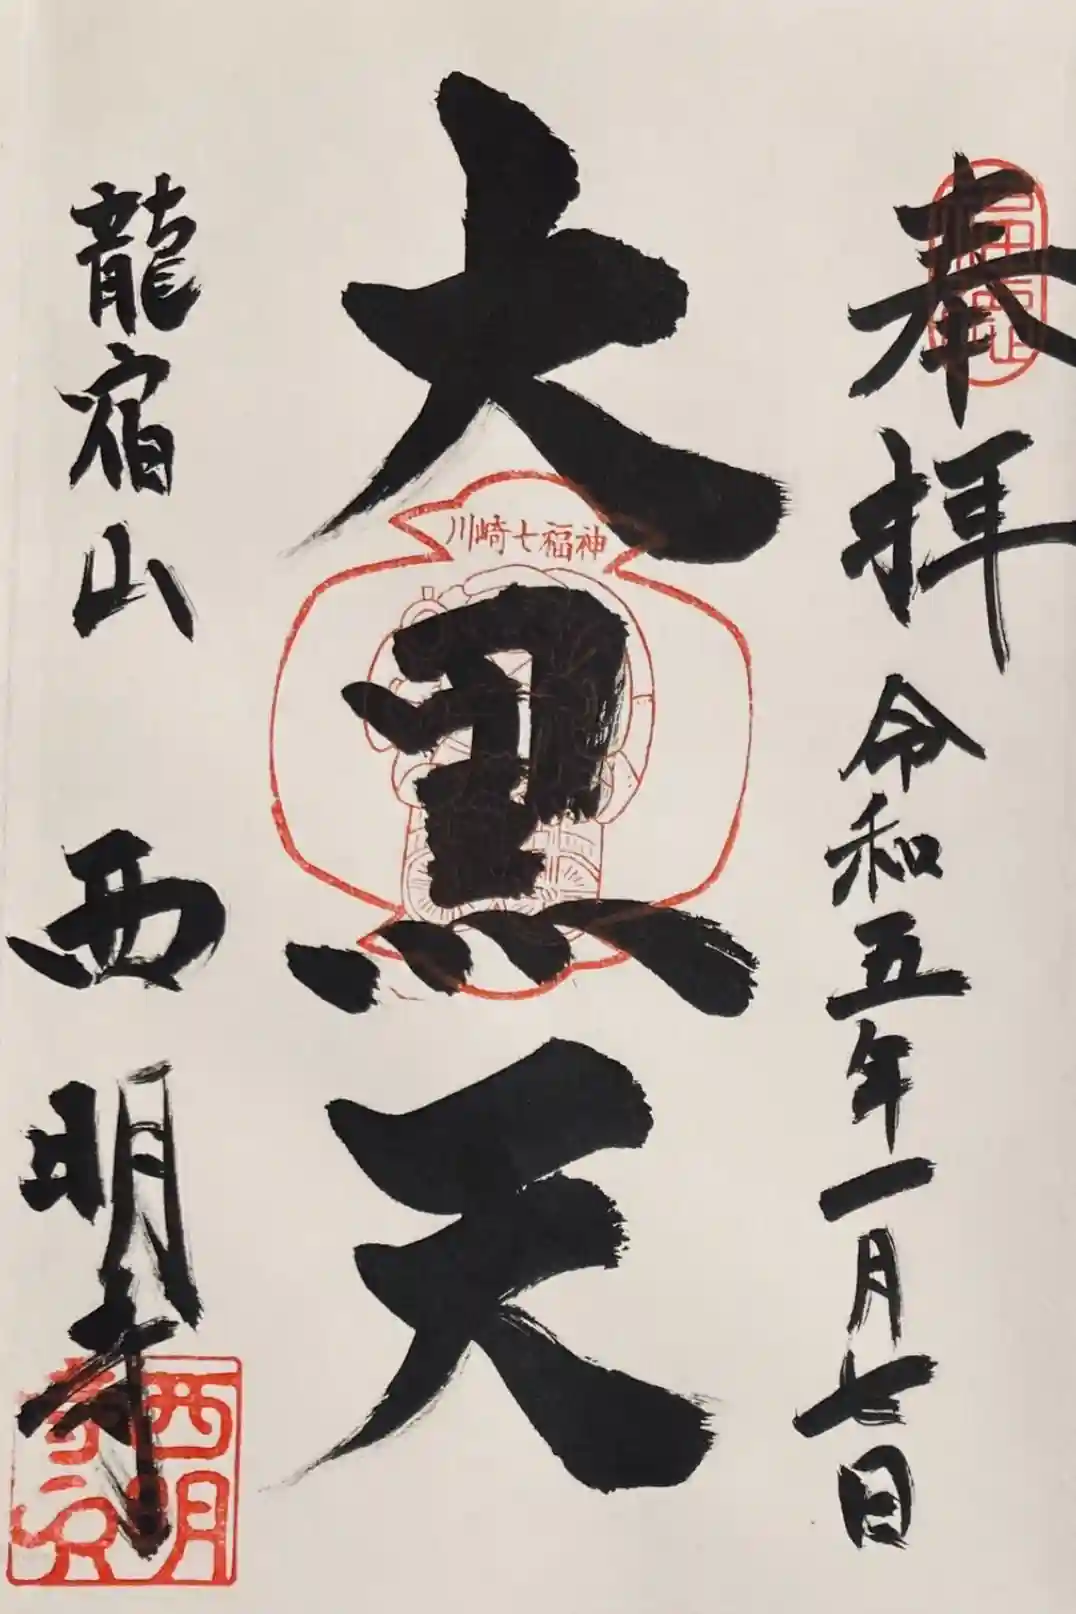 奉拝
令和五年一月七日
大黒天
川崎七福神
龍宿山
西明寺
西明寺印